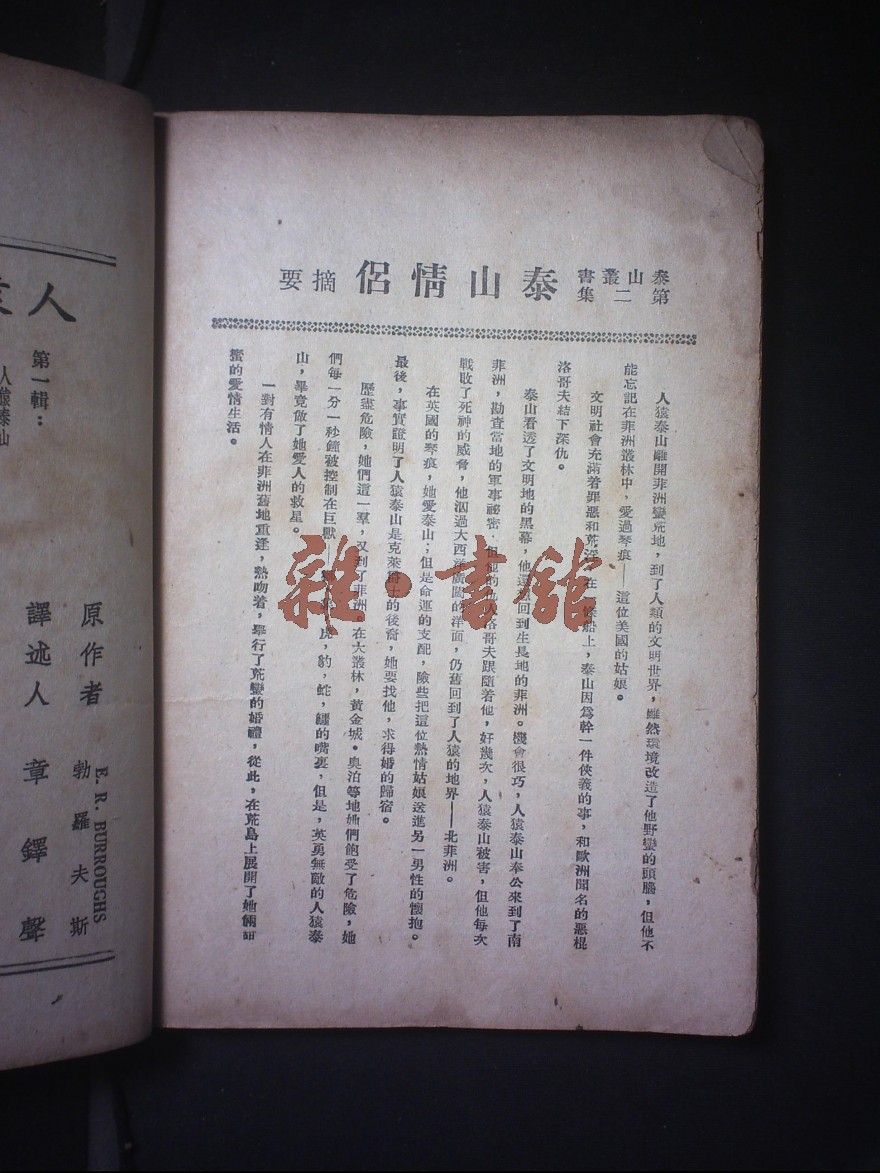 泰山叢書
第二集
泰山情侶 摘要
人猿泰山離開非洲蠻荒地，到了人類的文明世界，雖然環境改造了他野蠻的頭腦，但他不
能忘記在非洲叢林中，愛過琴痕——這位美國的姑娘。
文明社會充滿着罪惡和荒淫，在一條船上，泰山因爲幹一件俠義的事，和歐洲聞名的惡棍
洛哥夫結下深仇。
泰山看透了文明地的黑幕，他還想回到生長地的非洲。機會很巧，人猿泰山奉公來到了南
非洲，勘查當地的軍事祕密，但他的仇人洛哥夫跟隨着他，好幾次，人猿泰山被害，但他每次
戰敗了死神的威脅，他泅過大西洋廣闊的洋面，仍舊回到了人猿的地界——北非洲。
在英國的琴痕，她愛泰山；但是命運的支配，險些把這位熱情姑娘送進另一男性的懷抱。
最後，事實證明了人猿泰山是克萊爵士的後裔，她要找他，求得婚的歸宿。
歷盡危險，她們這一羣，又到了非洲。在大叢林，黃金城·奧泊等地她們飽受了危險，她
們每一分一秒鐘被控制在巨獸——虎，豹，蛇，鱷的嘴裏，但是，英勇無敵的人猿泰
山，畢竟做了她愛人的救星。
一對有情人在非洲舊地重逢，熱吻着，舉行了荒蠻的婚禮，從此，在荒島上展開了她倆甜
蜜的愛情生活。
人
第一輯：
人猿泰山
原作者 E. R. BURROUGHS
勃羅夫斯
譯述人 章鐸聲
雜·書館